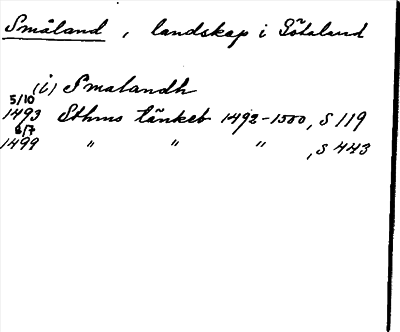 Småland, landskap i Götaland
(i) Smalandh
5/10
1493 Sthms tänkeb 1492-1500, s 119
6/7
1499 " " " , s 443